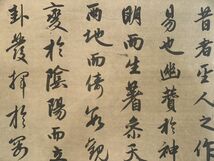 昔者聖人之作
易也幽贊於神
明而生蓍參天
兩地而倚數觀
變於陰陽而立
卦發揮於